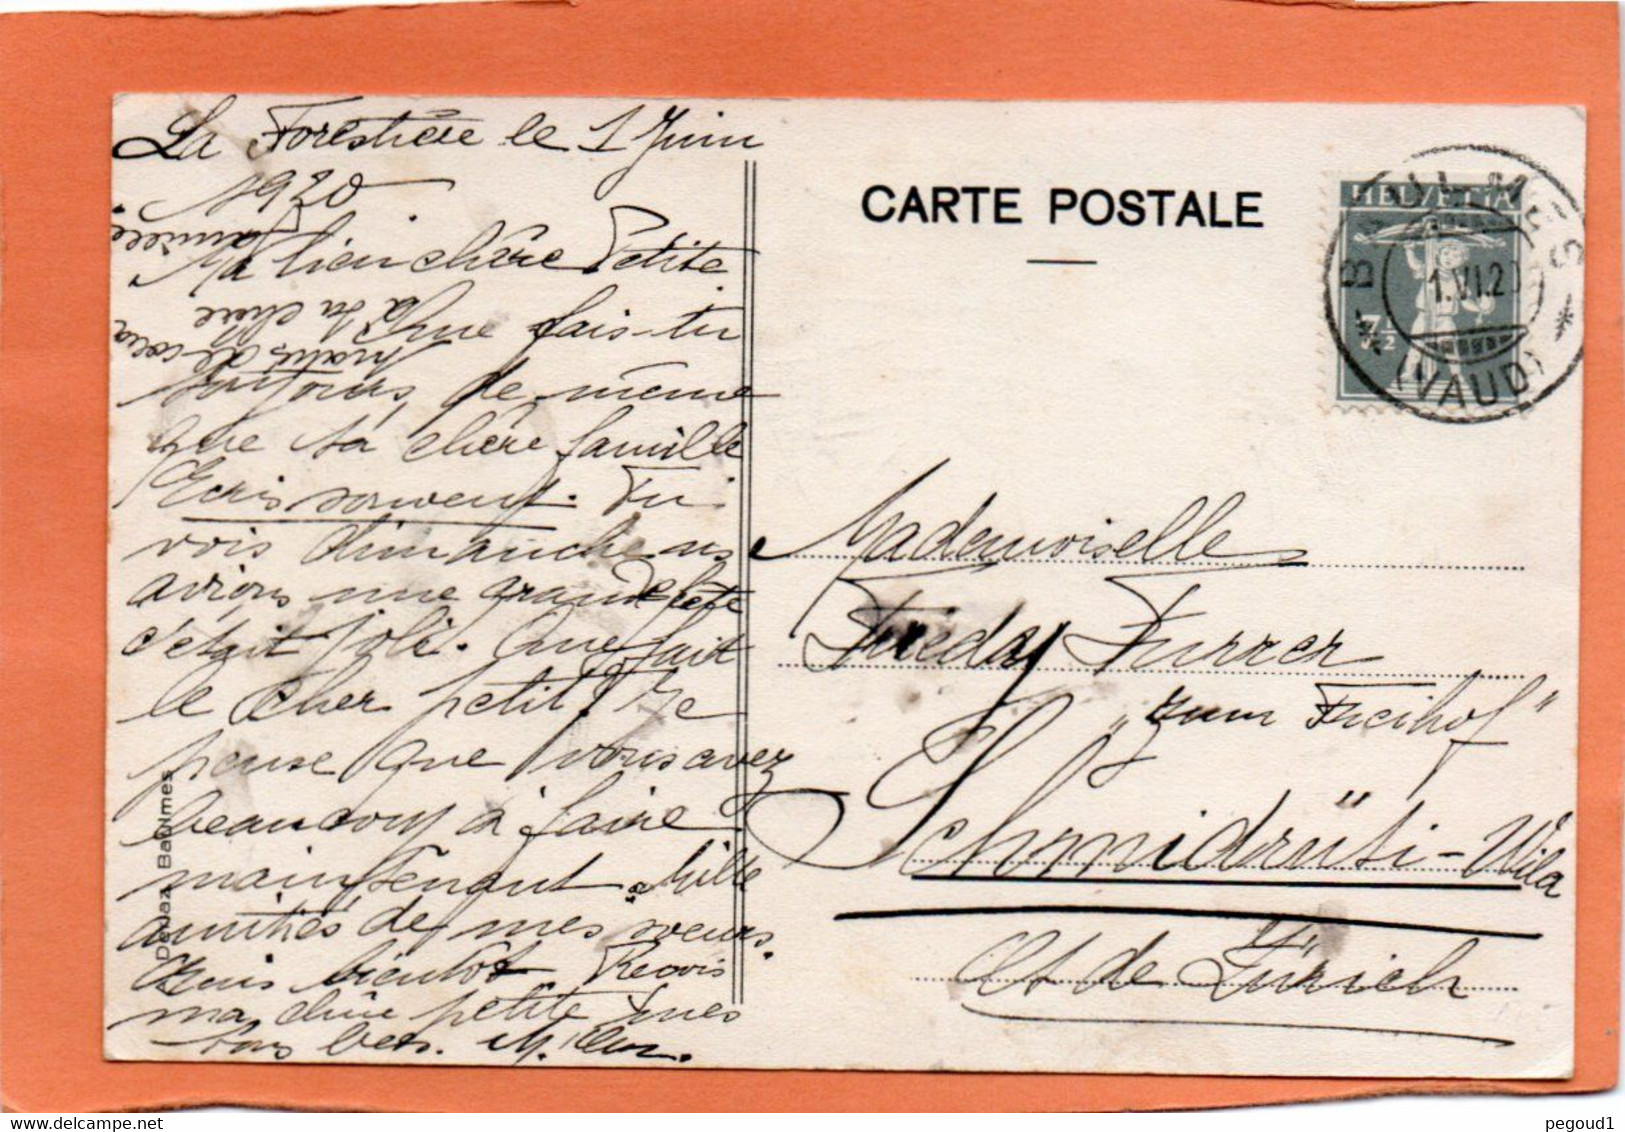 La Forestière le 1 Juin
1920
Ma bien chère Petite
Que fais-tu
toujours, de même
que ta chère famille
Ecris souvent. Tu
vois dimanche ns
avions une grande fête
c'était joli. Que fait
le cher petit? Je
pense que vous avez
beaucoup à faire
maintenant. Mille
amitiés de mes soeurs.
Ecris bientôt Reçois
ma chère petite mes
bons bers. M.
famille
à ta chère
Dériaz, Baulmes
CARTE POSTALE
HELVETIA
7½
BAULMES
1.VI.20
(VAUD)
Mademoiselle
Frieda Furrer
„zum Freihof"
Schmidrüti-Wila
Ct de Zürich
pegoud1